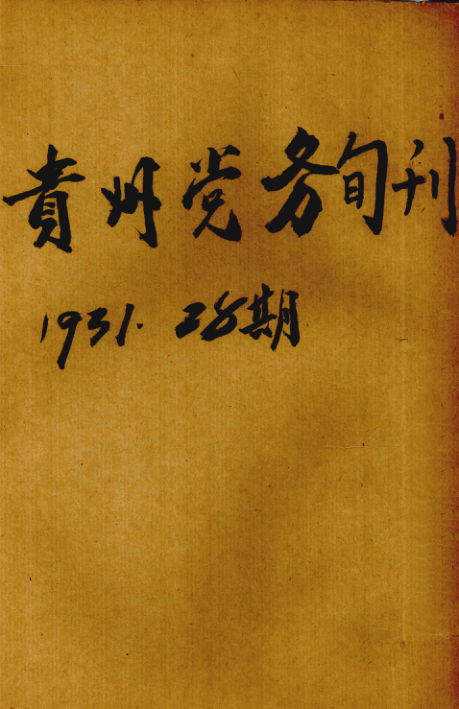 貴州党务旬刊
1931. 28期